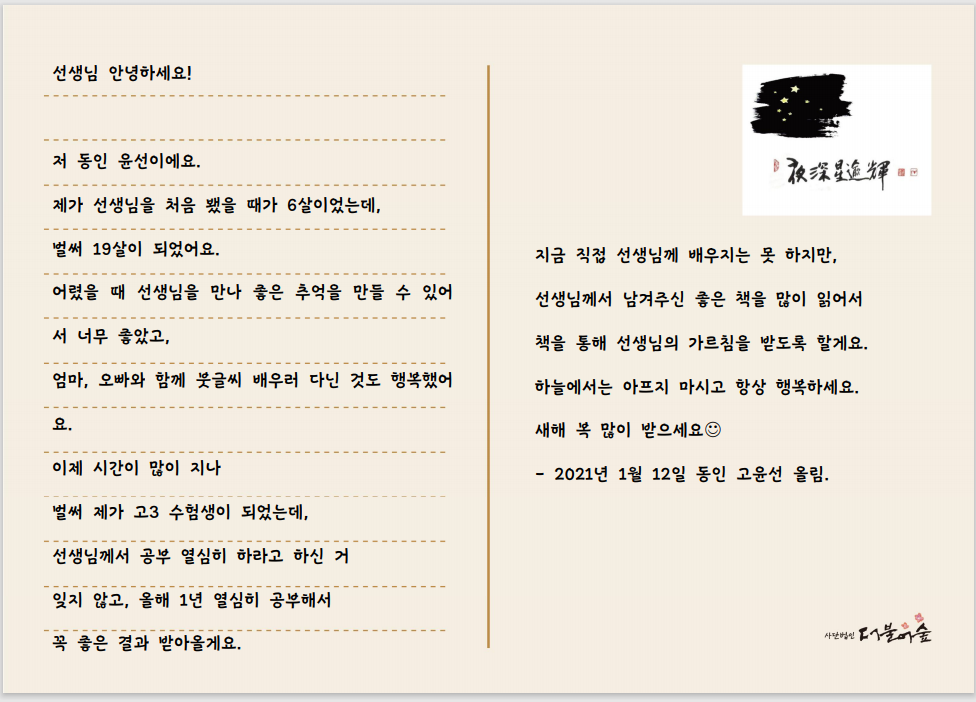 선생님 안녕하세요!
저 동인 윤선이에요.
제가 선생님을 처음 뵀을 때가 6살이었는데,
벌써 19살이 되었어요.
어렸을 때 선생님을 만나 좋은 추억을 만들 수 있어
서 너무 좋았고,
엄마, 오빠와 함께 붓글씨 배우러 다닌 것도 행복했어
요.
이제 시간이 많이 지나
벌써 제가 고3 수험생이 되었는데,
선생님께서 공부 열심히 하라고 하신 거
잊지 않고, 올해 1년 열심히 공부해서
꼭 좋은 결과 받아올게요.
夜深星逾輝
지금 직접 선생님께 배우지는 못 하지만,
선생님께서 남겨주신 좋은 책을 많이 읽어서
책을 통해 선생님의 가르침을 받도록 할게요.
하늘에서는 아프지 마시고 항상 행복하세요.
새해 복 많이 받으세요☺
- 2021년 1월 12일 동인 고윤선 올림.
사단법인 더불어숲